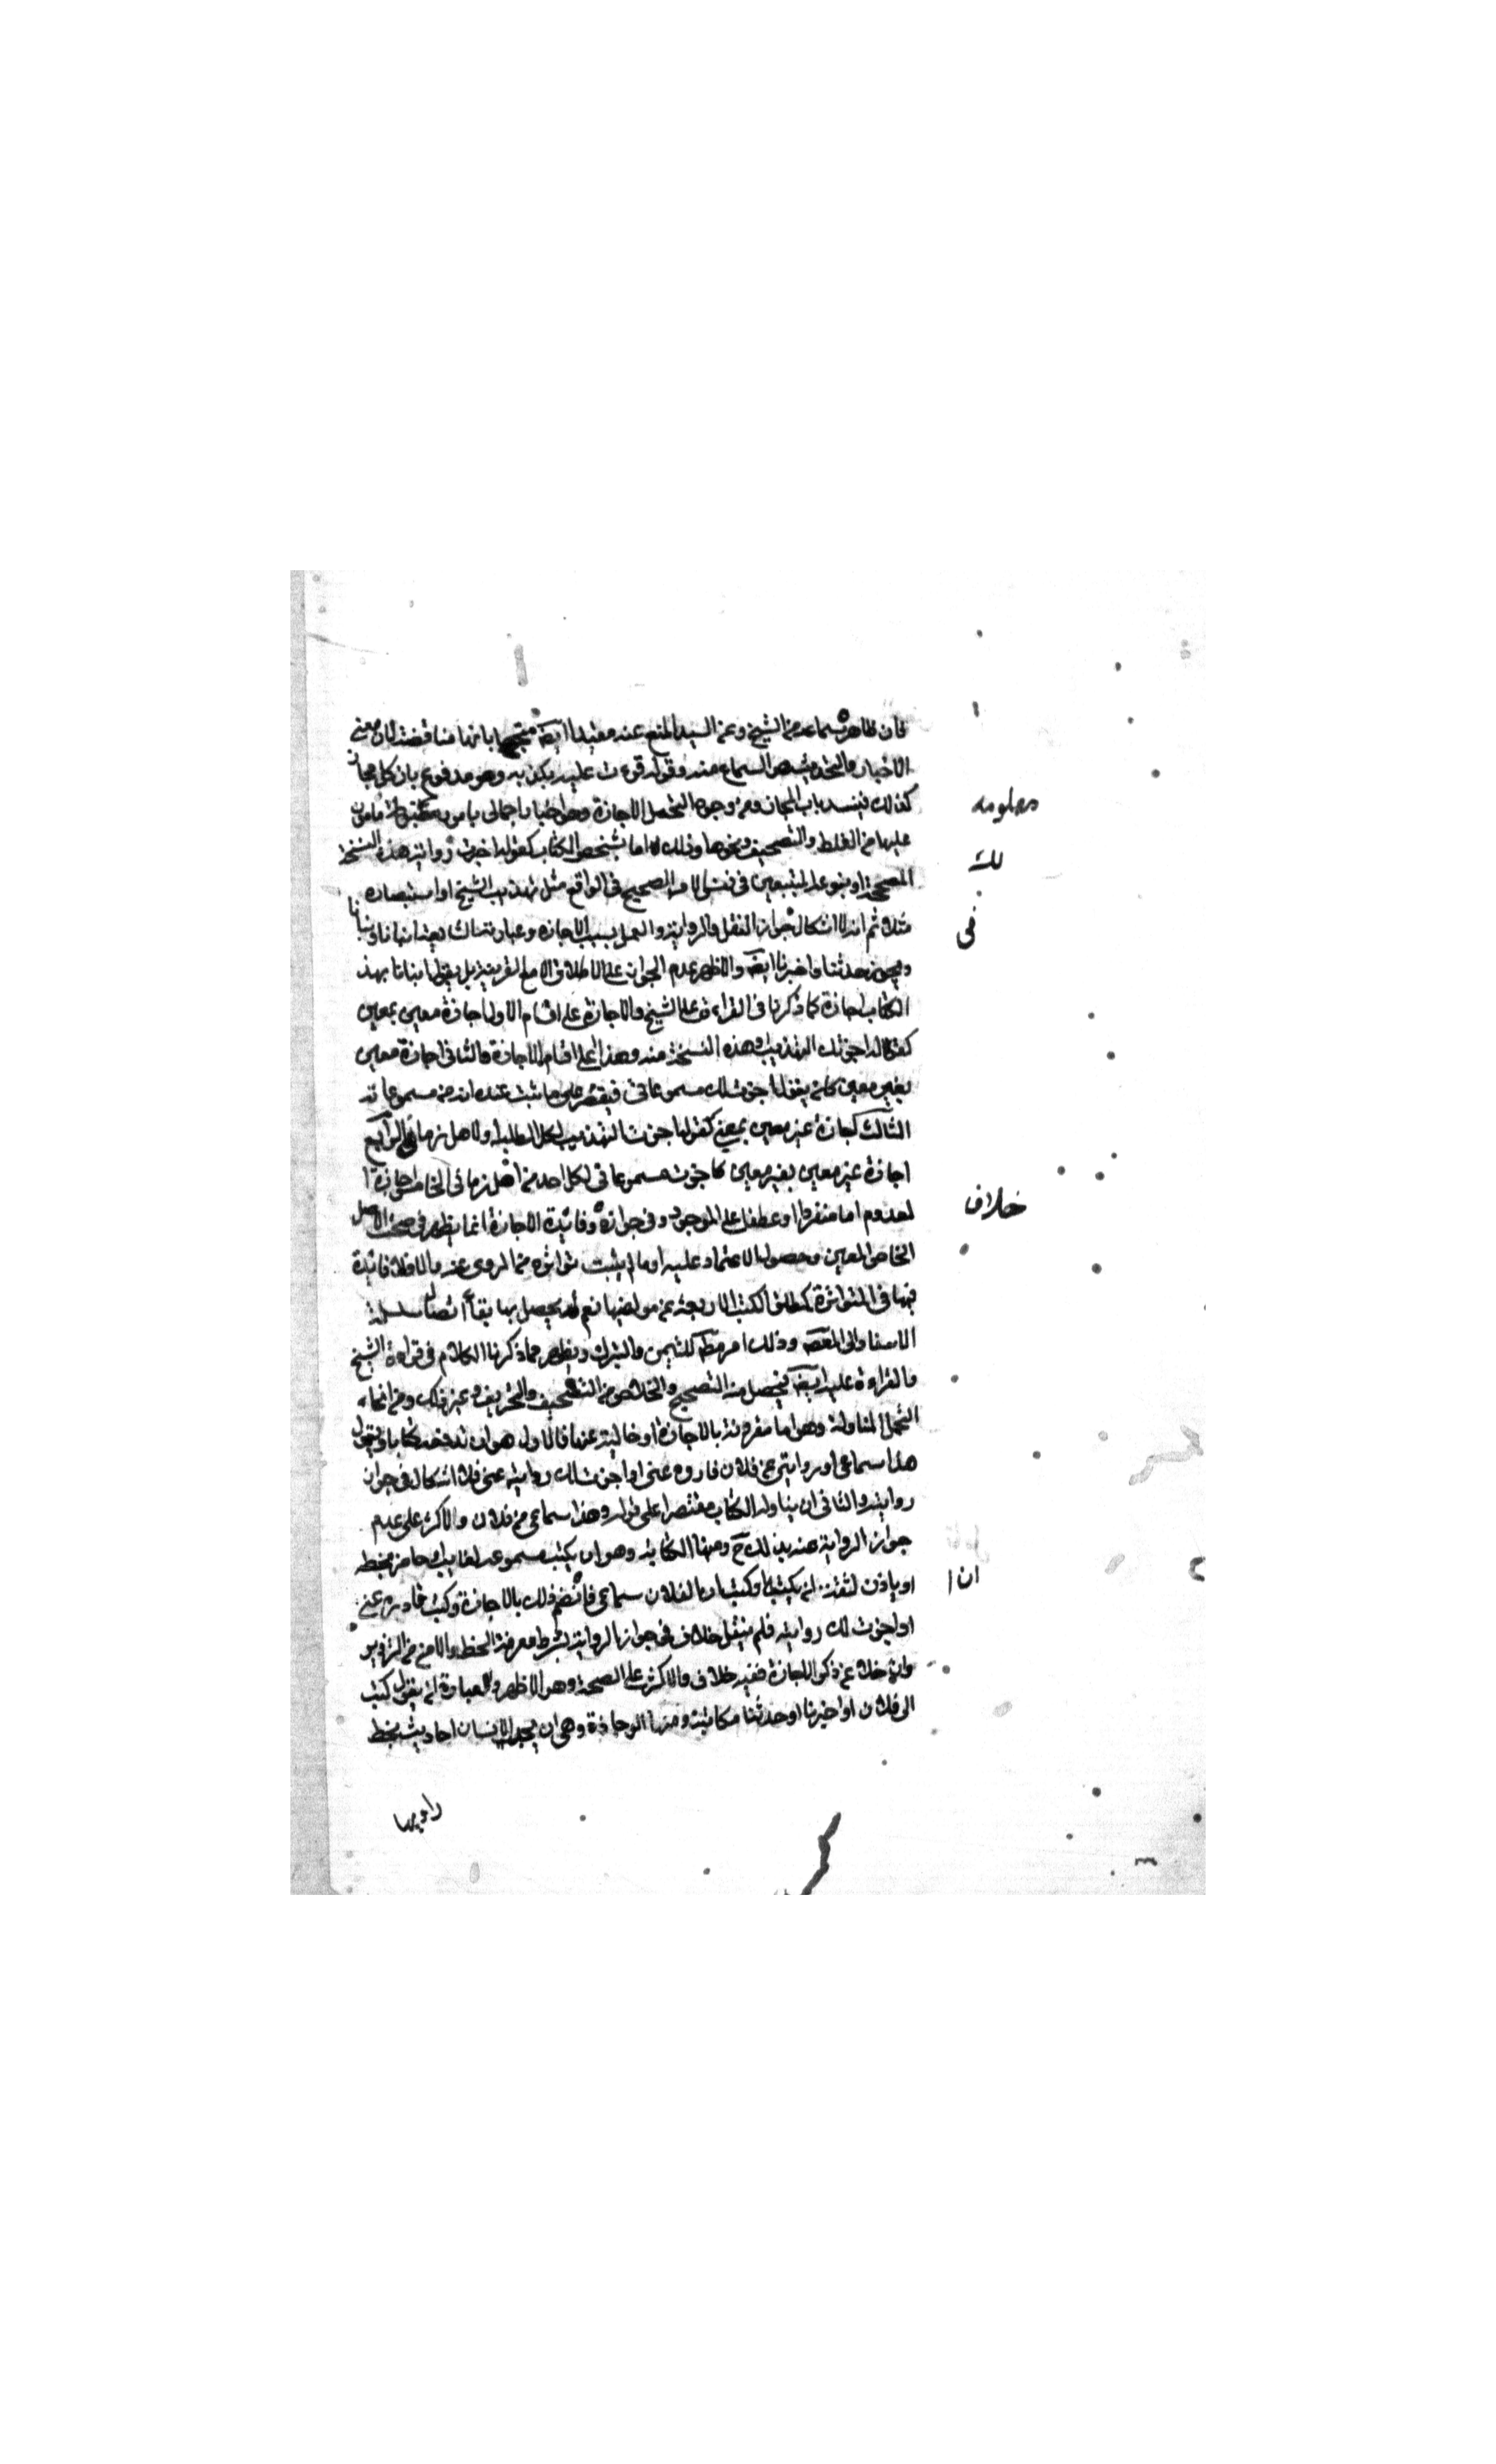 فان ظاهره سماعه من الشيخ وعن السيد المنع عنه مقيدا ايضا محتجا بانها مناقضة لان معنى
الاخبار والتحديث هو السماع منه وقوله قرءت عليه يكذبه وهو مدفوع بان كل مجاز
كذلك فينسد باب المجاز ومن وجوه التحمل الاجازة وهو اخبار اجمالى بامور مضبوطة مامون
عليها من الغلط والتصحيف ونحوها وذلك اما بشخص الكتاب كقوله اجزت رواية هذه النسخة
المصححة او بنوعه المتعين فى نفس الامر الصحيح فى الواقع مثل تهذيب الشيخ او استبصاره
مثلا ثم انه لا اشكال جواز النقل والرواية والعمل بسبب الاجازة وعبارته الشايعة انبانا ونبانا
ويجوز حدثنا واخبرنا ايضا والاظهر عدم الجواز على الاطلاق الا مع القرينة بل يقول انبانا بهذا
الكتاب اجازة كما ذكرنا فى القراءة على الشيخ والاجازة على اقسام الاول اجازة معين بمعين
كقوله اجزتك التهذيب وهذه النسخة منه وهذا اعلى اقسام الاجازة والثانى اجازة معين
بغير معين كان يقول اجزت لك مسموعاتى فيقتصر على ما ثبت عنده انه من مسموعاته
الثالث اجازة غير معين بمعين كقوله اجزت التهذيب لكل الطلبة او لاهل زمانى الرابع
اجازة غير معين بغير معين كاجزت مسموعاتى لكل احد من اهل زمانى الخامس اجازة ا
لمعدوم اما منفردا او عطفا على الموجود وفى جوازه وفائدة الاجازة انما يظهر فى صحة الاصل
الخاص المعين وحصول الاعتماد عليه او ما لم يثبت تواتره من المروى عنه والا فلا فائدة
فيها فى المتواترة كمطلق الكتب الاربعة عن مولفيها نعم يحصل بها بقاء اتصال سلسلة
الاسناد الى المعصوم وذلك امر مط للتيمن والتبرك ويظهر مما ذكرنا الكلام فى قراءة الشيخ
والقراءة عليه ايضا فيحصل منه التصحيح والخلاص من التصحيف والتحريف وغير ذلك ومن انحاء
التحمل المناولة وهو اما مقرونة بالاجازة او خالية عنها فالاول هو ان يدفعه كتابا ويقول
هذا سماعى او روايتى عن فلان فاروه عنى او اجزت لك روايته عنى فلا اشكال فى جواز
روايته والثانى ان يناوله الكتاب مقتصرا على قوله هذا سماعى من فلان والاكثر على عدم
جواز الرواية عنه بذلك ح ومنها الكتابة وهو ان يكتب مسموعه لغايب او حاضر بخطه
او ياذن لثقة ان يكتبها او كتب ان الفلان سماعى فان ضم ذلك بالاجازة وكتب فاروه عنى
او اجزت لك روايته فلم ينقل خلاف فى جواز الرواية بشرط معرفة الخط والامن من التزوير
وان خلا عن ذكر الاجازة ففيه خلاف والاكثر على الصحة وهو الاظهر والعبارة ان يقول كتب
الى فلان او اخبرنا او حدثنا مكاتبة ومنها الوجادة وهى ان يجد الانسان احاديث بخط
راويها
معلومه
لك
فى
خلاف
ان